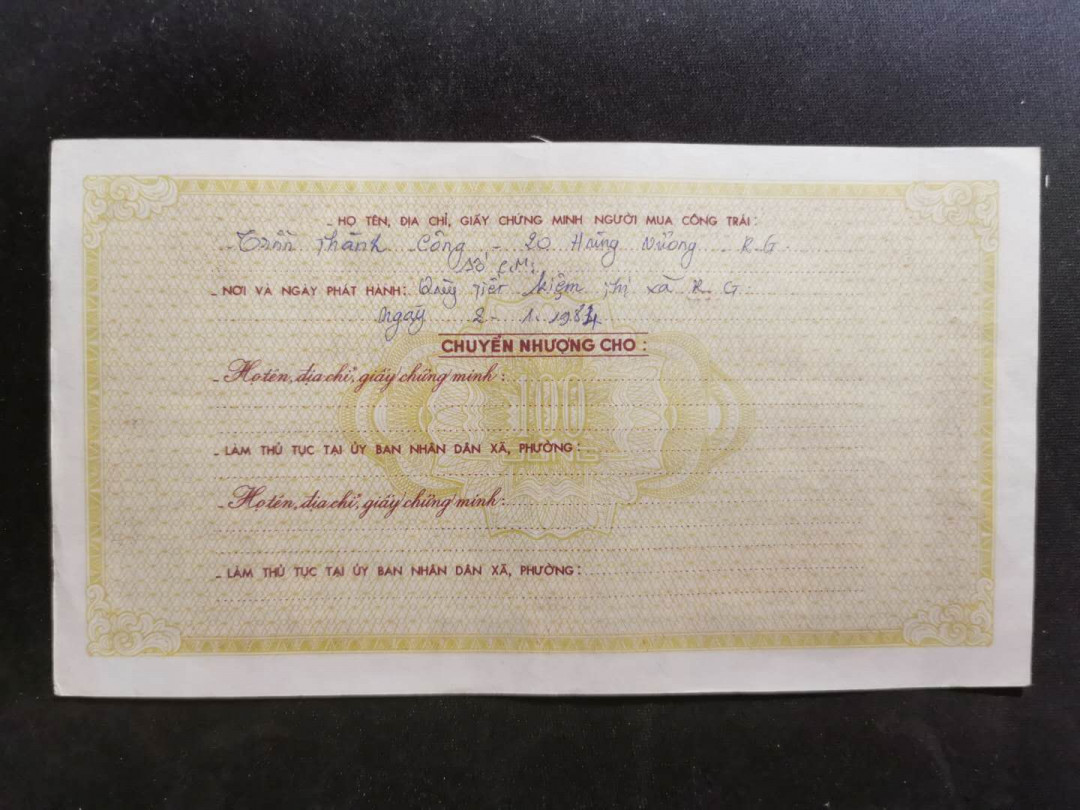 _ HỌ TÊN, ĐỊA CHỈ, GIẤY CHỨNG MINH NGƯỜI MUA CÔNG TRÁI :
Trần Thành Công - 20 Hùng Vương R.G
Số C.M.
_ NƠI VÀ NGÀY PHÁT HÀNH: Quỹ Tiết kiệm thị xã R.G.
Ngày 2-1.1984
CHUYỂN NHƯỢNG CHO :
_ Họ tên, địa chỉ, giấy chứng minh :
100
ĐỒNG
_ LÀM THỦ TỤC TẠI ỦY BAN NHÂN DÂN XÃ, PHƯỜNG :
_ Họ tên, địa chỉ, giấy chứng minh :
_ LÀM THỦ TỤC TẠI ỦY BAN NHÂN DÂN XÃ, PHƯỜNG :